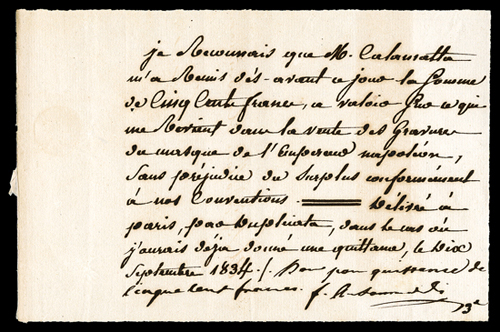 je Reconnais que M. Calamatta
m'a Remis dès-avant ce jour la Somme
de Cinq Cents francs, a valoir Sur ce qui
me Revient dans la vente des Gravures
du masque de l'Empereur napoléon,
Sans préjudice du Surplus conformément
à nos Conventions. Délivré à
paris, par Duplicata, dans le cas où
j'aurais déja donné une quittance, le Dix
Septembre 1834 ./. Bon pour quittance de
Cinque cent francs. f. Antommarchi